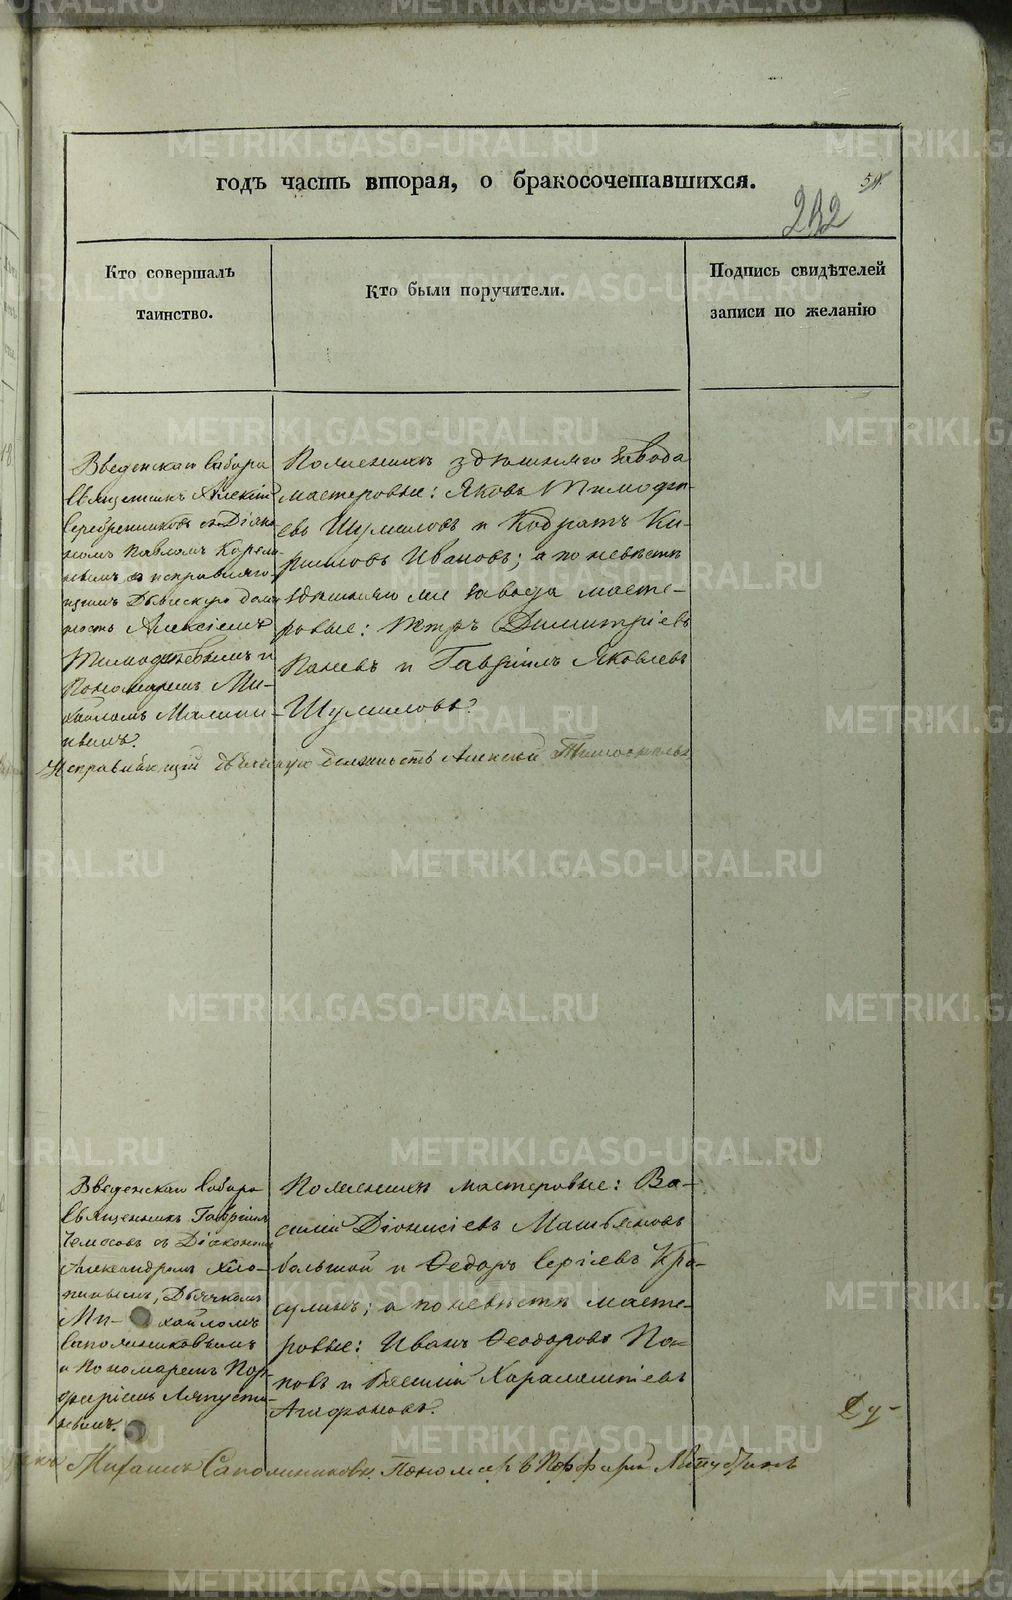 годъ часть вторая, о бракосочетавшихся.
232
Кто совершалъ
таинство.
Кто были поручители.
Подпись свидѣтелей
записи по желанію
Введенскаго Собора
Священникъ Алексій
Серебренниковъ съ Діяко-
номъ Павломъ
исправляю-
щимъ Дьяческую долж-
ность Алексіемъ
Тимофеевымъ и
Пономаремъ Ми-
хайломъ Малини-
нымъ.
По женихѣ здѣшняго завода
мастеровые: Яковъ Тимофе-
евъ Шумиловъ и Кодратъ Ки-
риловъ Ивановъ; а по невѣстѣ
здѣшняго же завода масте-
ровые: Петръ Димитріевъ
Паневъ и Гавріилъ Яковлевъ
Шумиловъ.
Исправляющій дьяческую должность Алексѣй Тимофеевъ
Введенскаго Собора
Священникъ Гавріилъ
съ Діакономъ
Александромъ Хло-
пинымъ, Дьячкомъ
Ми- хайломъ
Сапожниковымъ
и Пономаремъ Пор-
фиріемъ Ляпусти-
нымъ.
По женихѣ мастеровые: Ва-
силій Діонисіевъ
большой и Ѳедоръ Сергіевъ Кра-
сулинъ; а по невѣстѣ масте-
ровые: Иванъ Ѳеодоровъ По-
повъ и Василій Харлампіевъ
Агафоновъ.
Михаилъ Сапожниковъ. Пономарь Порфирій Ляпустинъ